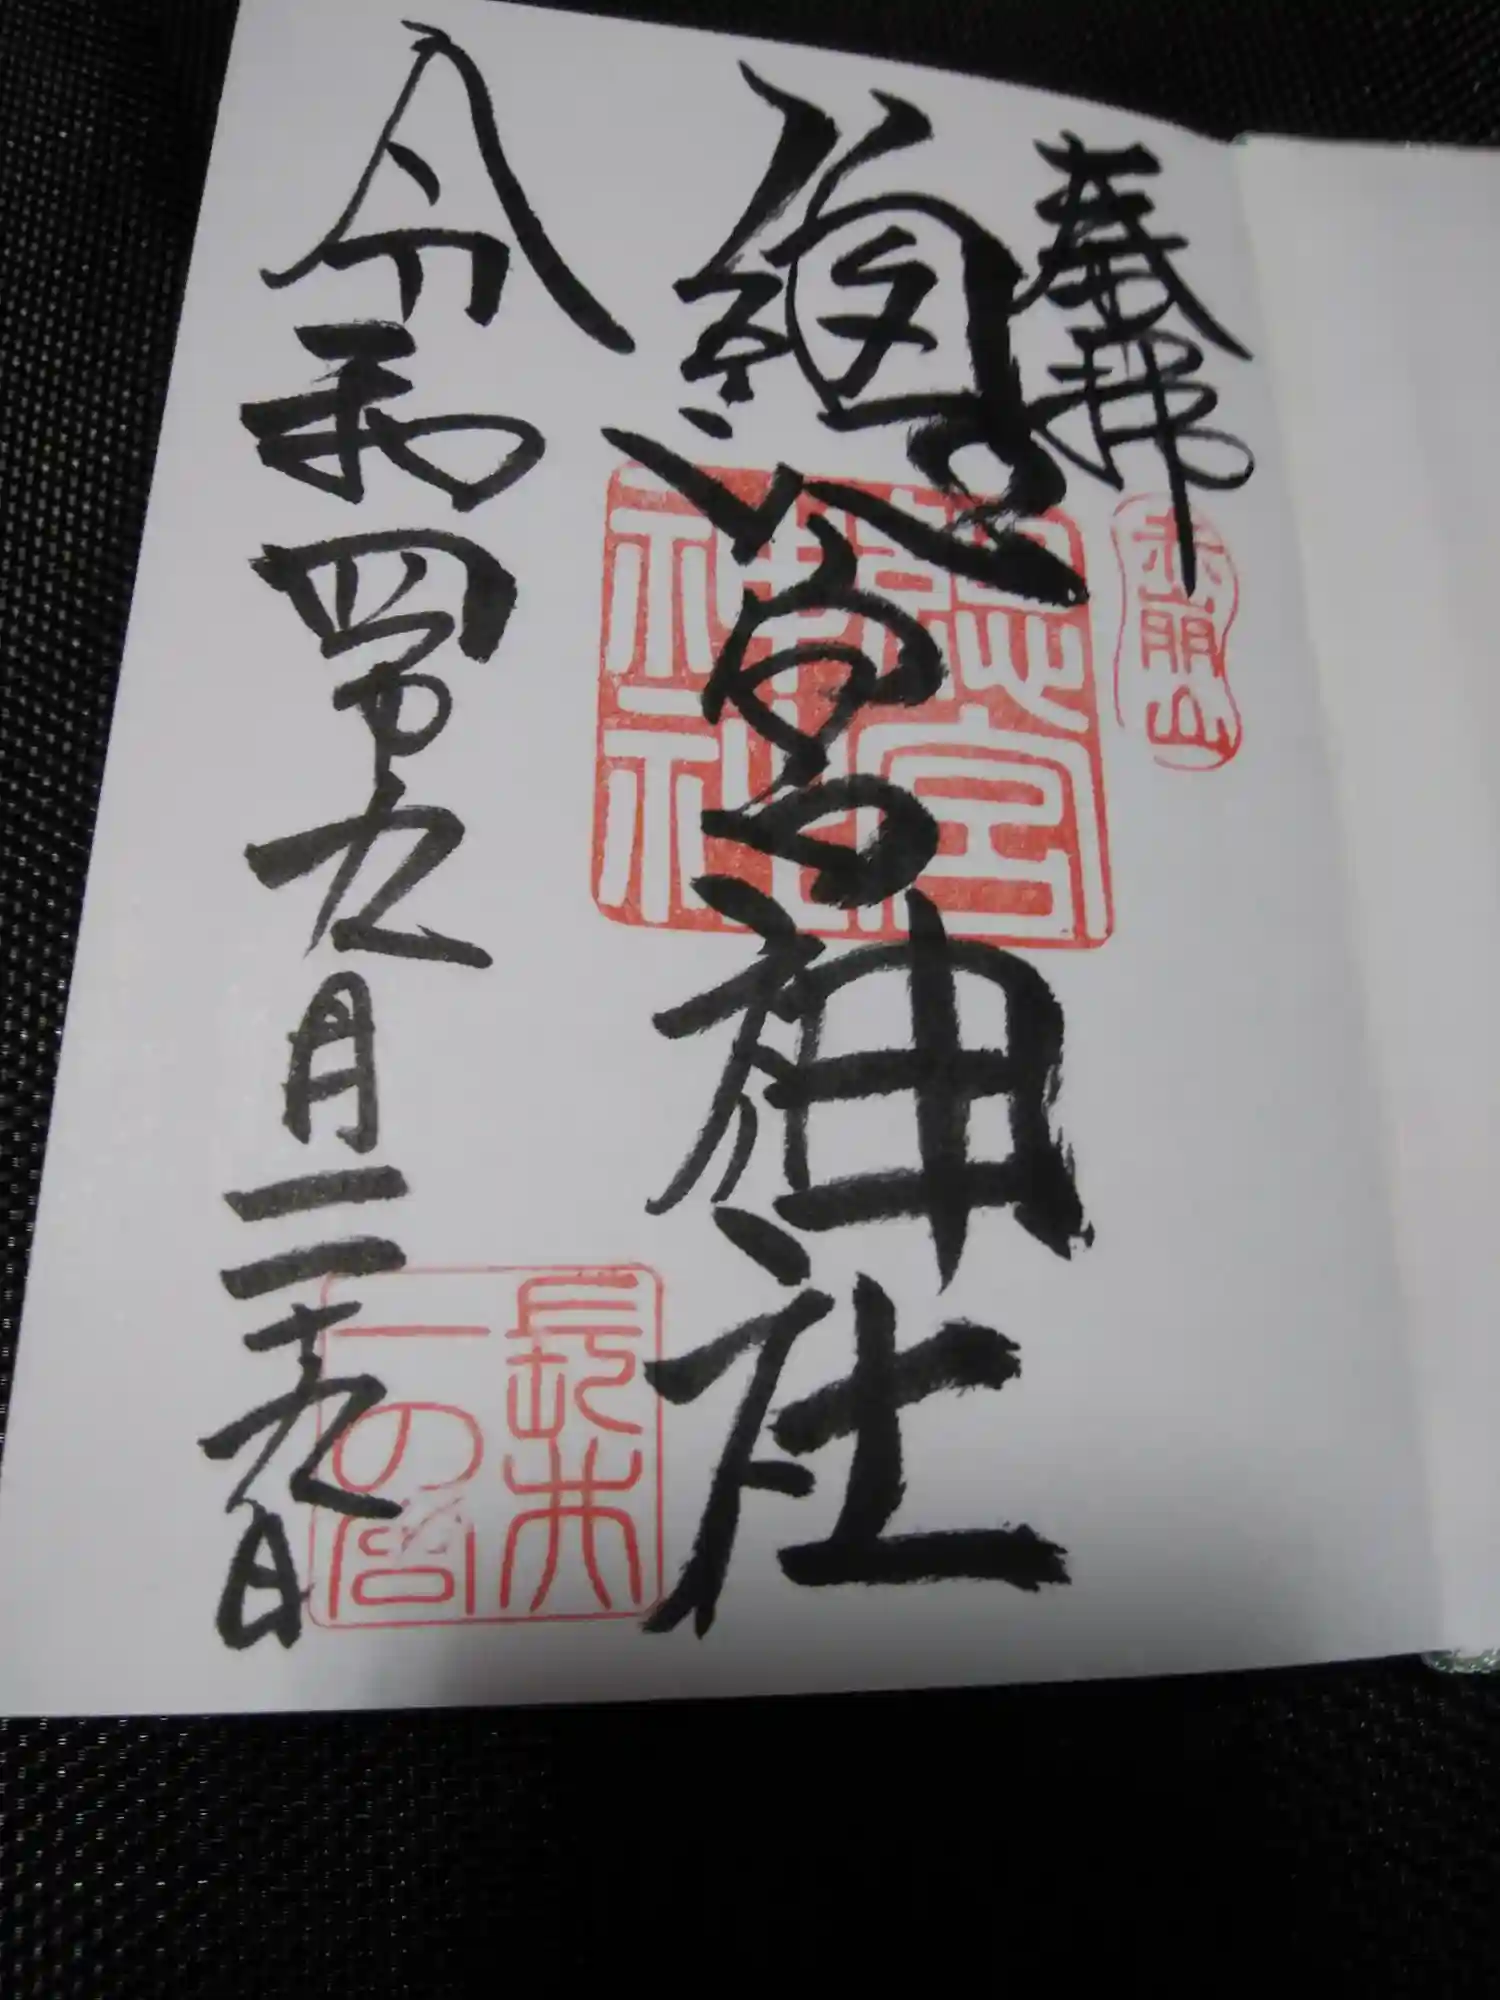 奉拝
赤崩山
總宮神社
總宮
神社
令和四年九月二十九日
長井
一の宮